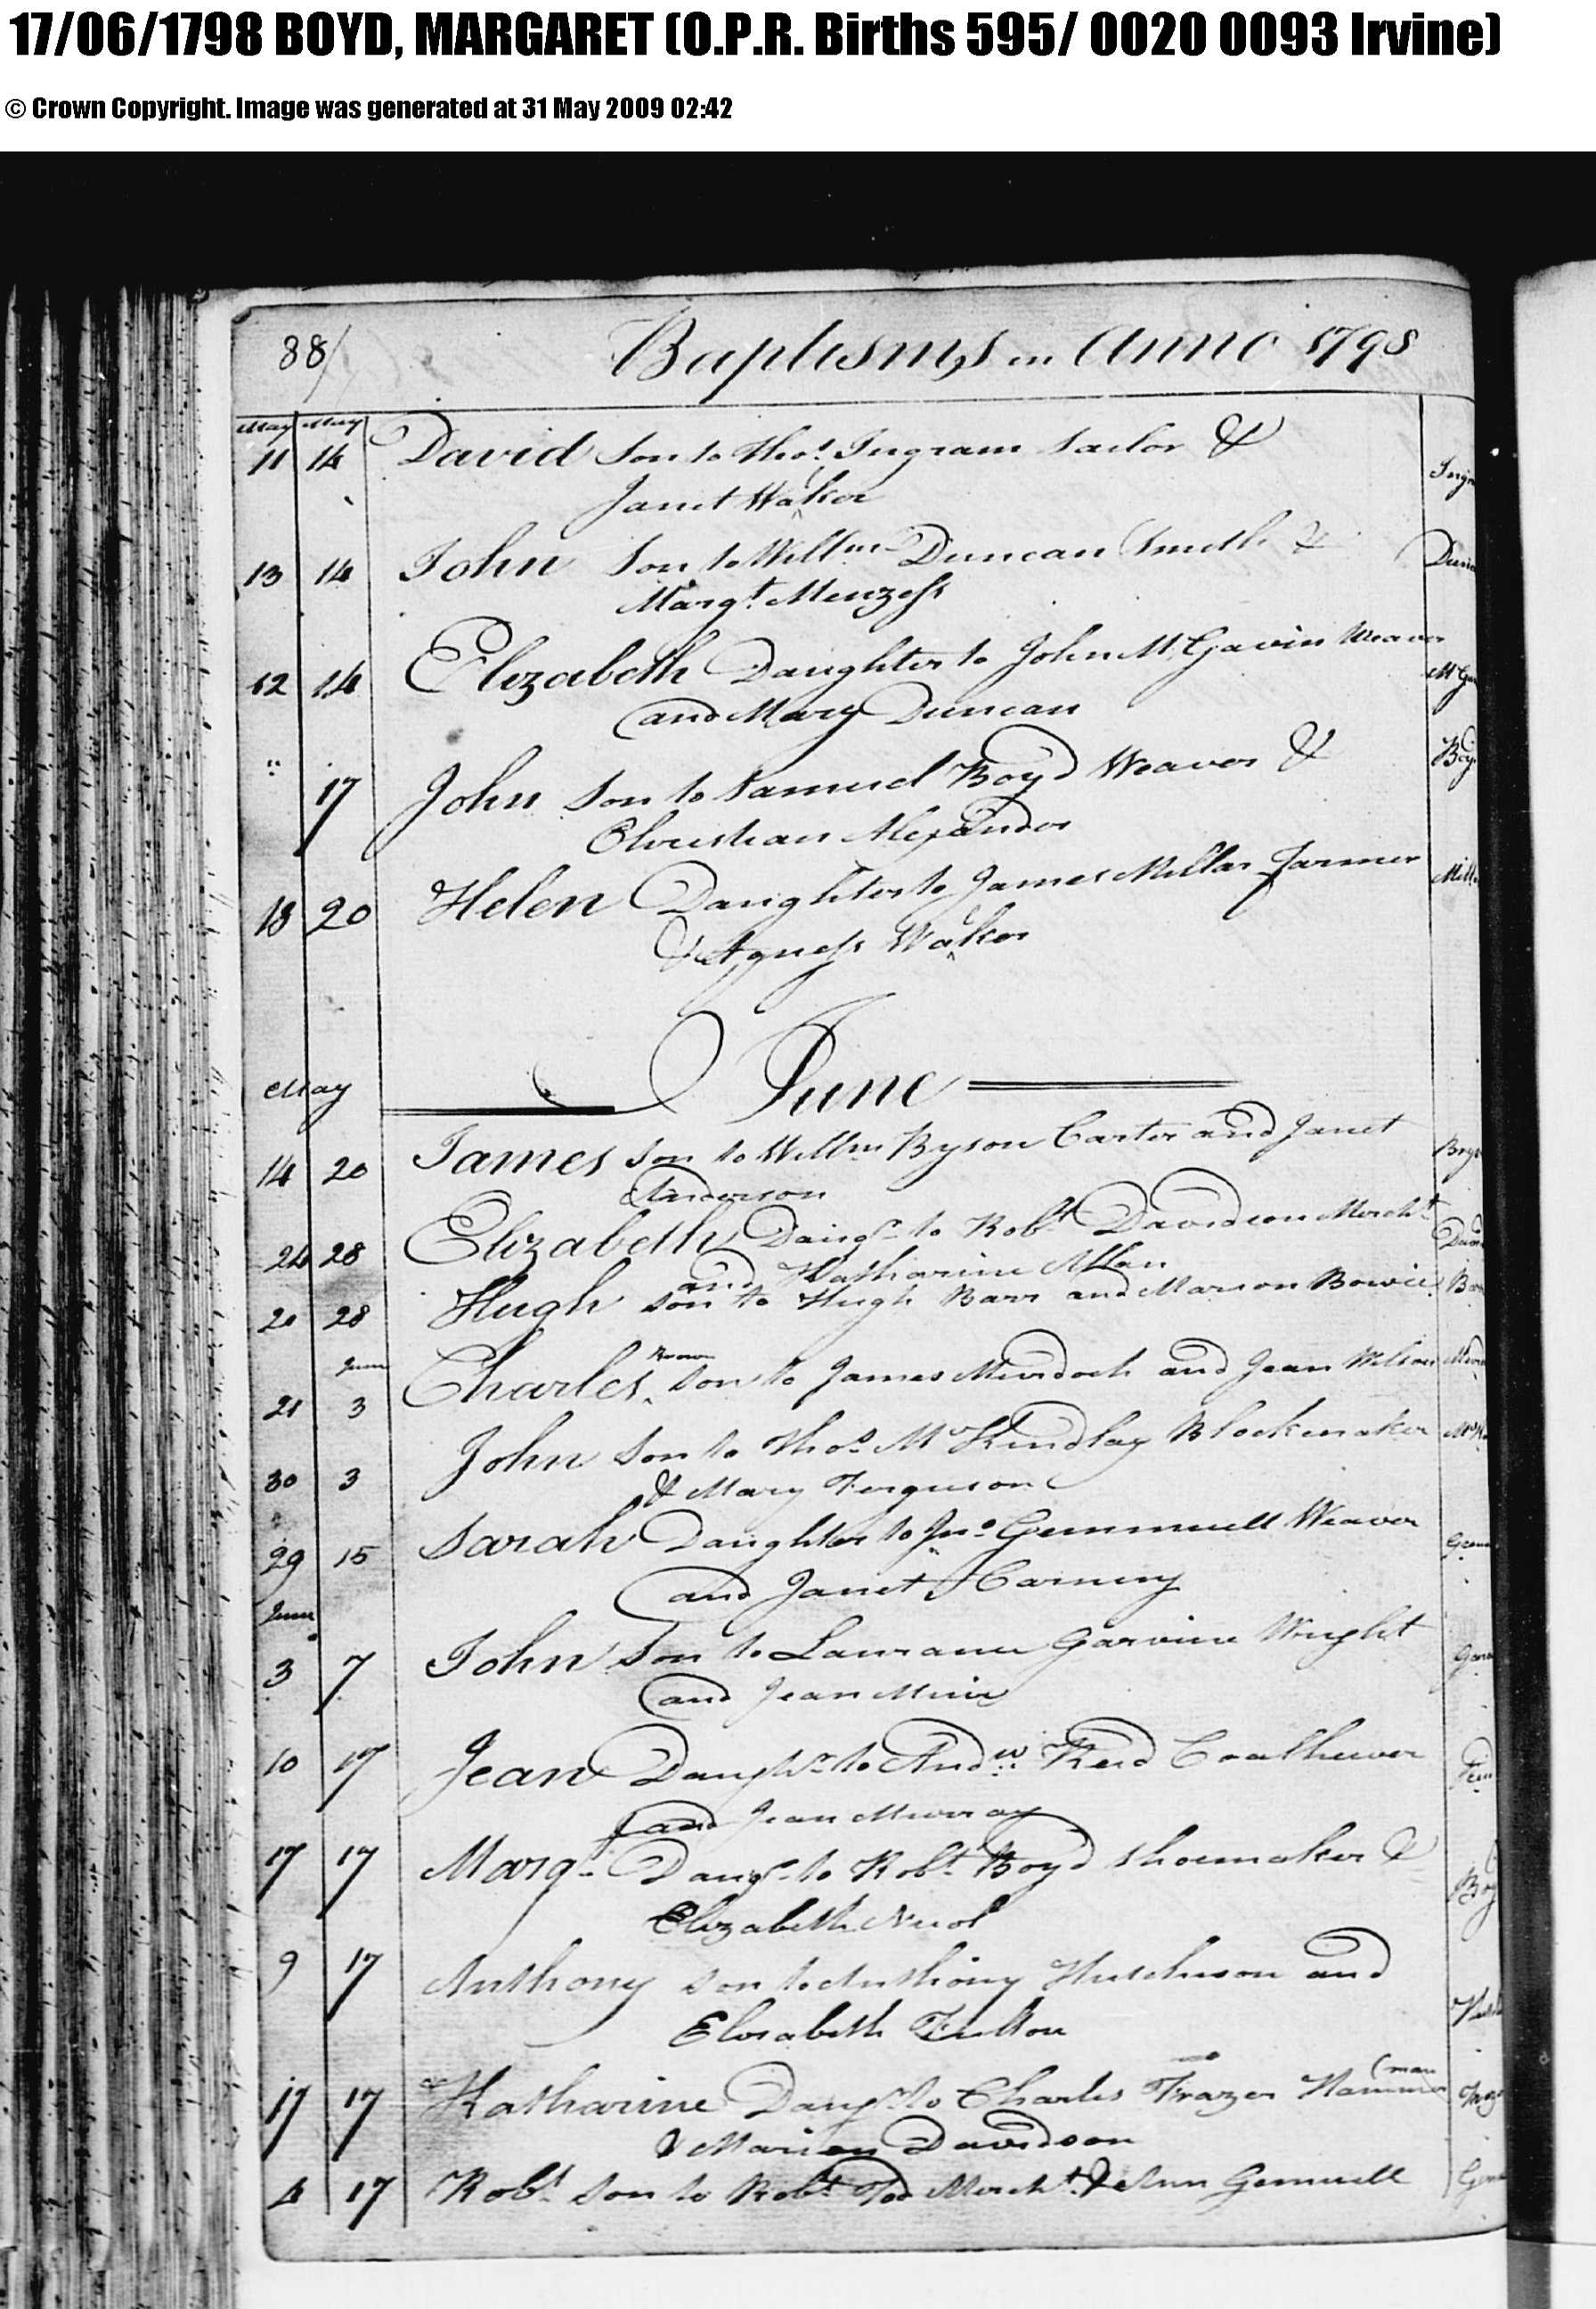 17/06/1798 BOYD, MARGARET (O.P.R. Births 595/ 0020 0093 Irvine)
© Crown Copyright. Image was generated at 31 May 2009 02:42
88/ Baptisms in Anno 1798
May May
11 14 David Son to Thos. Ingram Sailor &
Janet Walker
13 14 John Son to Willm Duncan Smith &
Margt. Menzess
12 14 Elizabeth Daughter to John McGavin Weaver
and Mary Duncan
" 17 John Son to Samuel Boyd Weaver & Boyd
Christian Alexander
18 20 Helen Daughter to James Millar Farmer
& Agness Walker
June
May
14 20 James Son to Willm Bryson Carter and Janet
Anderson
24 28 Elizabeth Daugr to Robt Davidson Mercht
and Katharine Allan
20 28 Hugh Son to Hugh Barr and Marion Bowie
June
21 3 Charles Son to James Murdoch and Jean Wilson
30 3 John Son to Thos McKindlay Blockmaker
& Mary Ferguson
29 15 Sarah Daughter to Jno Gemmuell Weaver
and Janet Carnery
June
3 7 John Son to Laurance Garvine Wright
and Jean Muir
10 17 Jean Daughr to Andw Reid Coalhewer
and Jean Murray
17 17 Margt Daugr to Robt Boyd Shoemaker &
Elizabeth Nicol
9 17 Anthony Son to Anthony Hutchison and
Elisabeth Fulton
17 17 Katharine Daugr to Charles Frazer Hammer
(man
& Marion Davidson
4 17 Robt Son to Robt Tod Mercht & Ann Gemuell